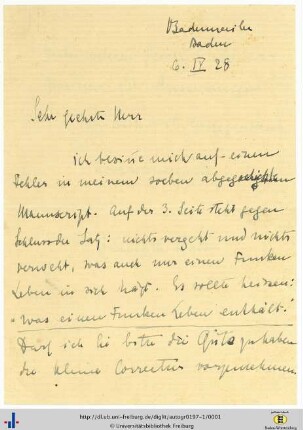 Badenweiler
Baden
6. IV 28
Sehr geehrter Herr
ich besinne mich auf einen
Fehler in meinem soeben abgeschickten
Manuscript. Auf der 3. Seite steht gegen
Schluss der Satz: nichts vergeht und nichts
verweht, was auch nur einen Funken
Leben in sich trägt. Es sollte heissen:
"was einen Funken Leben enthält."
Darf ich Sie bitte die Güte zu haben
die kleine Correctur vorzunehmen
http://dl.ub.uni-freiburg.de/diglit/autogr0197-1/0001
© Universitätsbibliothek Freiburg